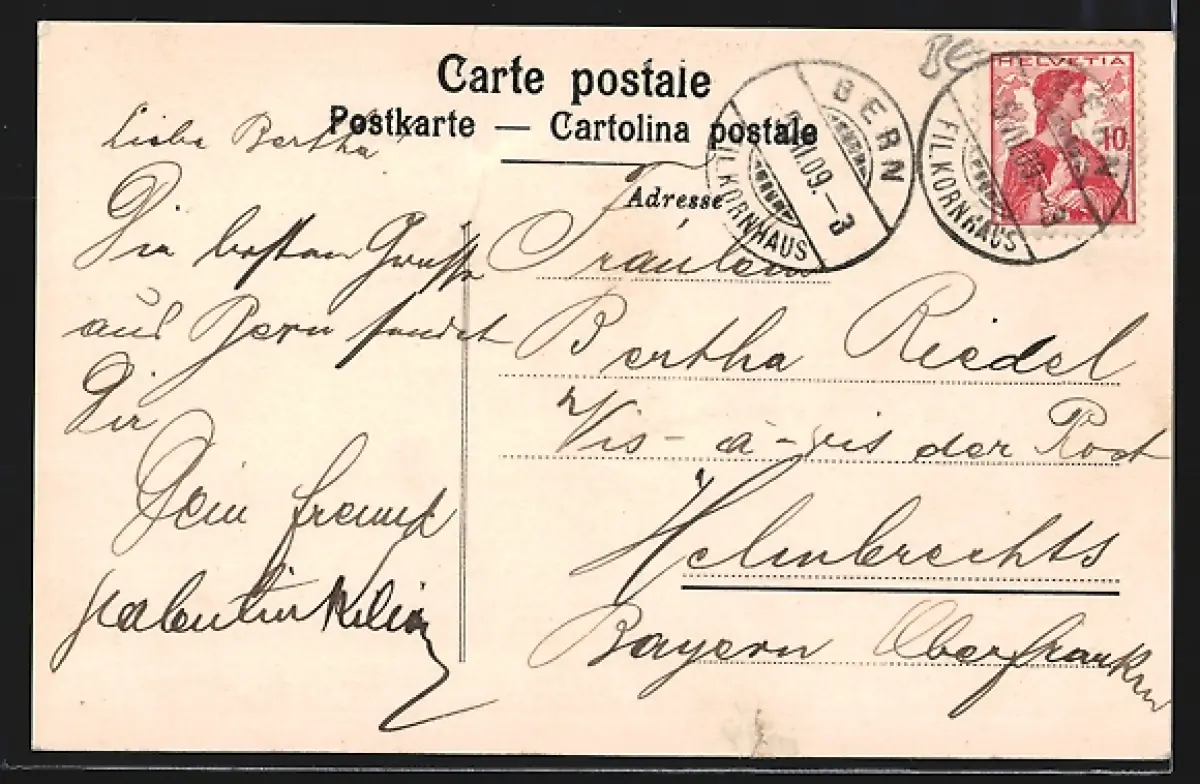 Carte postale
Postkarte — Cartolina postale
Adresse
HELVETIA
10
BERN
VII.09.-3
FIL.KORNHAUS
BERN
VII.09.-3
FIL.KORNHAUS
Liebe Bertha
Die besten Grüsse
aus Bern sendet
Dir
Dein freund
Valentin Kilian
Fräulein
Bertha Riedel
Vis-à-vis der Post
Helmbrechts
Bayern Oberfranken